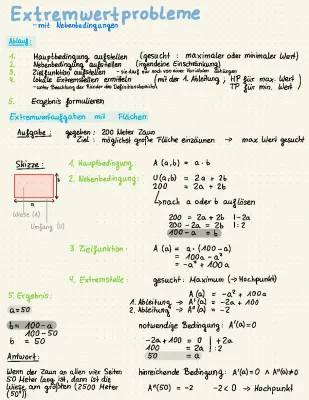 Extremwertprobleme
- mit Nebenbedingungen
Ablauf:
1. Hauptbedingung aufstellen (gesucht: maximaler oder minimaler Wert)
2. Nebenbedingung aufstellen (irgendeine Einschränkung)
3. Zielfunktion aufstellen - sie darf nur noch von einer Variablen abhängen
4. lokale Extremstellen ermitteln (mit der 1. Ableitung; HP für max. Wert)
- unter Beachtung der Ränder des Definitionsbereichs TP für min. Wert)
5. Ergebnis formulieren
Extremwertaufgaben mit Flächen:
Aufgabe: gegeben: 200 Meter Zaun
Ziel: möglichst große Fläche einzäunen → max Wert gesucht
Skizze:
b
a
Wiese (A)
Umfang (U)
1. Hauptbedingung: A(a,b) = a·b
2. Nebenbedingung: U(a,b) = 2a + 2b
200 = 2a + 2b
nach a oder b auflösen
200 = 2a + 2b |-2a
200 - 2a = 2b |:2
100 - a = b
3. Zielfunktion: A(a) = a·(100-a)
= 100a - a²
= -a² + 100a
4. Extremstelle: gesucht: Maximum (→ Hochpunkt)
A(a) = -a² + 100a
1. Ableitung → A'(a) = -2a + 100
2. Ableitung → A"(a) = -2
notwendige Bedingung: A'(a) = 0
-2a + 100 = 0 |+2a
100 = 2a |:2
50 = a
hinreichende Bedingung: A'(a) = 0 ∧ A"(a) ≠ 0
A"(50) = -2 -2 < 0 → Hochpunkt
5. Ergebnis:
a = 50
b = 100 - a
100 - 50
b = 50
Antwort:
Wenn der Zaun an allen vier Seiten
50 Meter lang ist, dann ist die
Wiese am größten (2500 Meter
(50²))